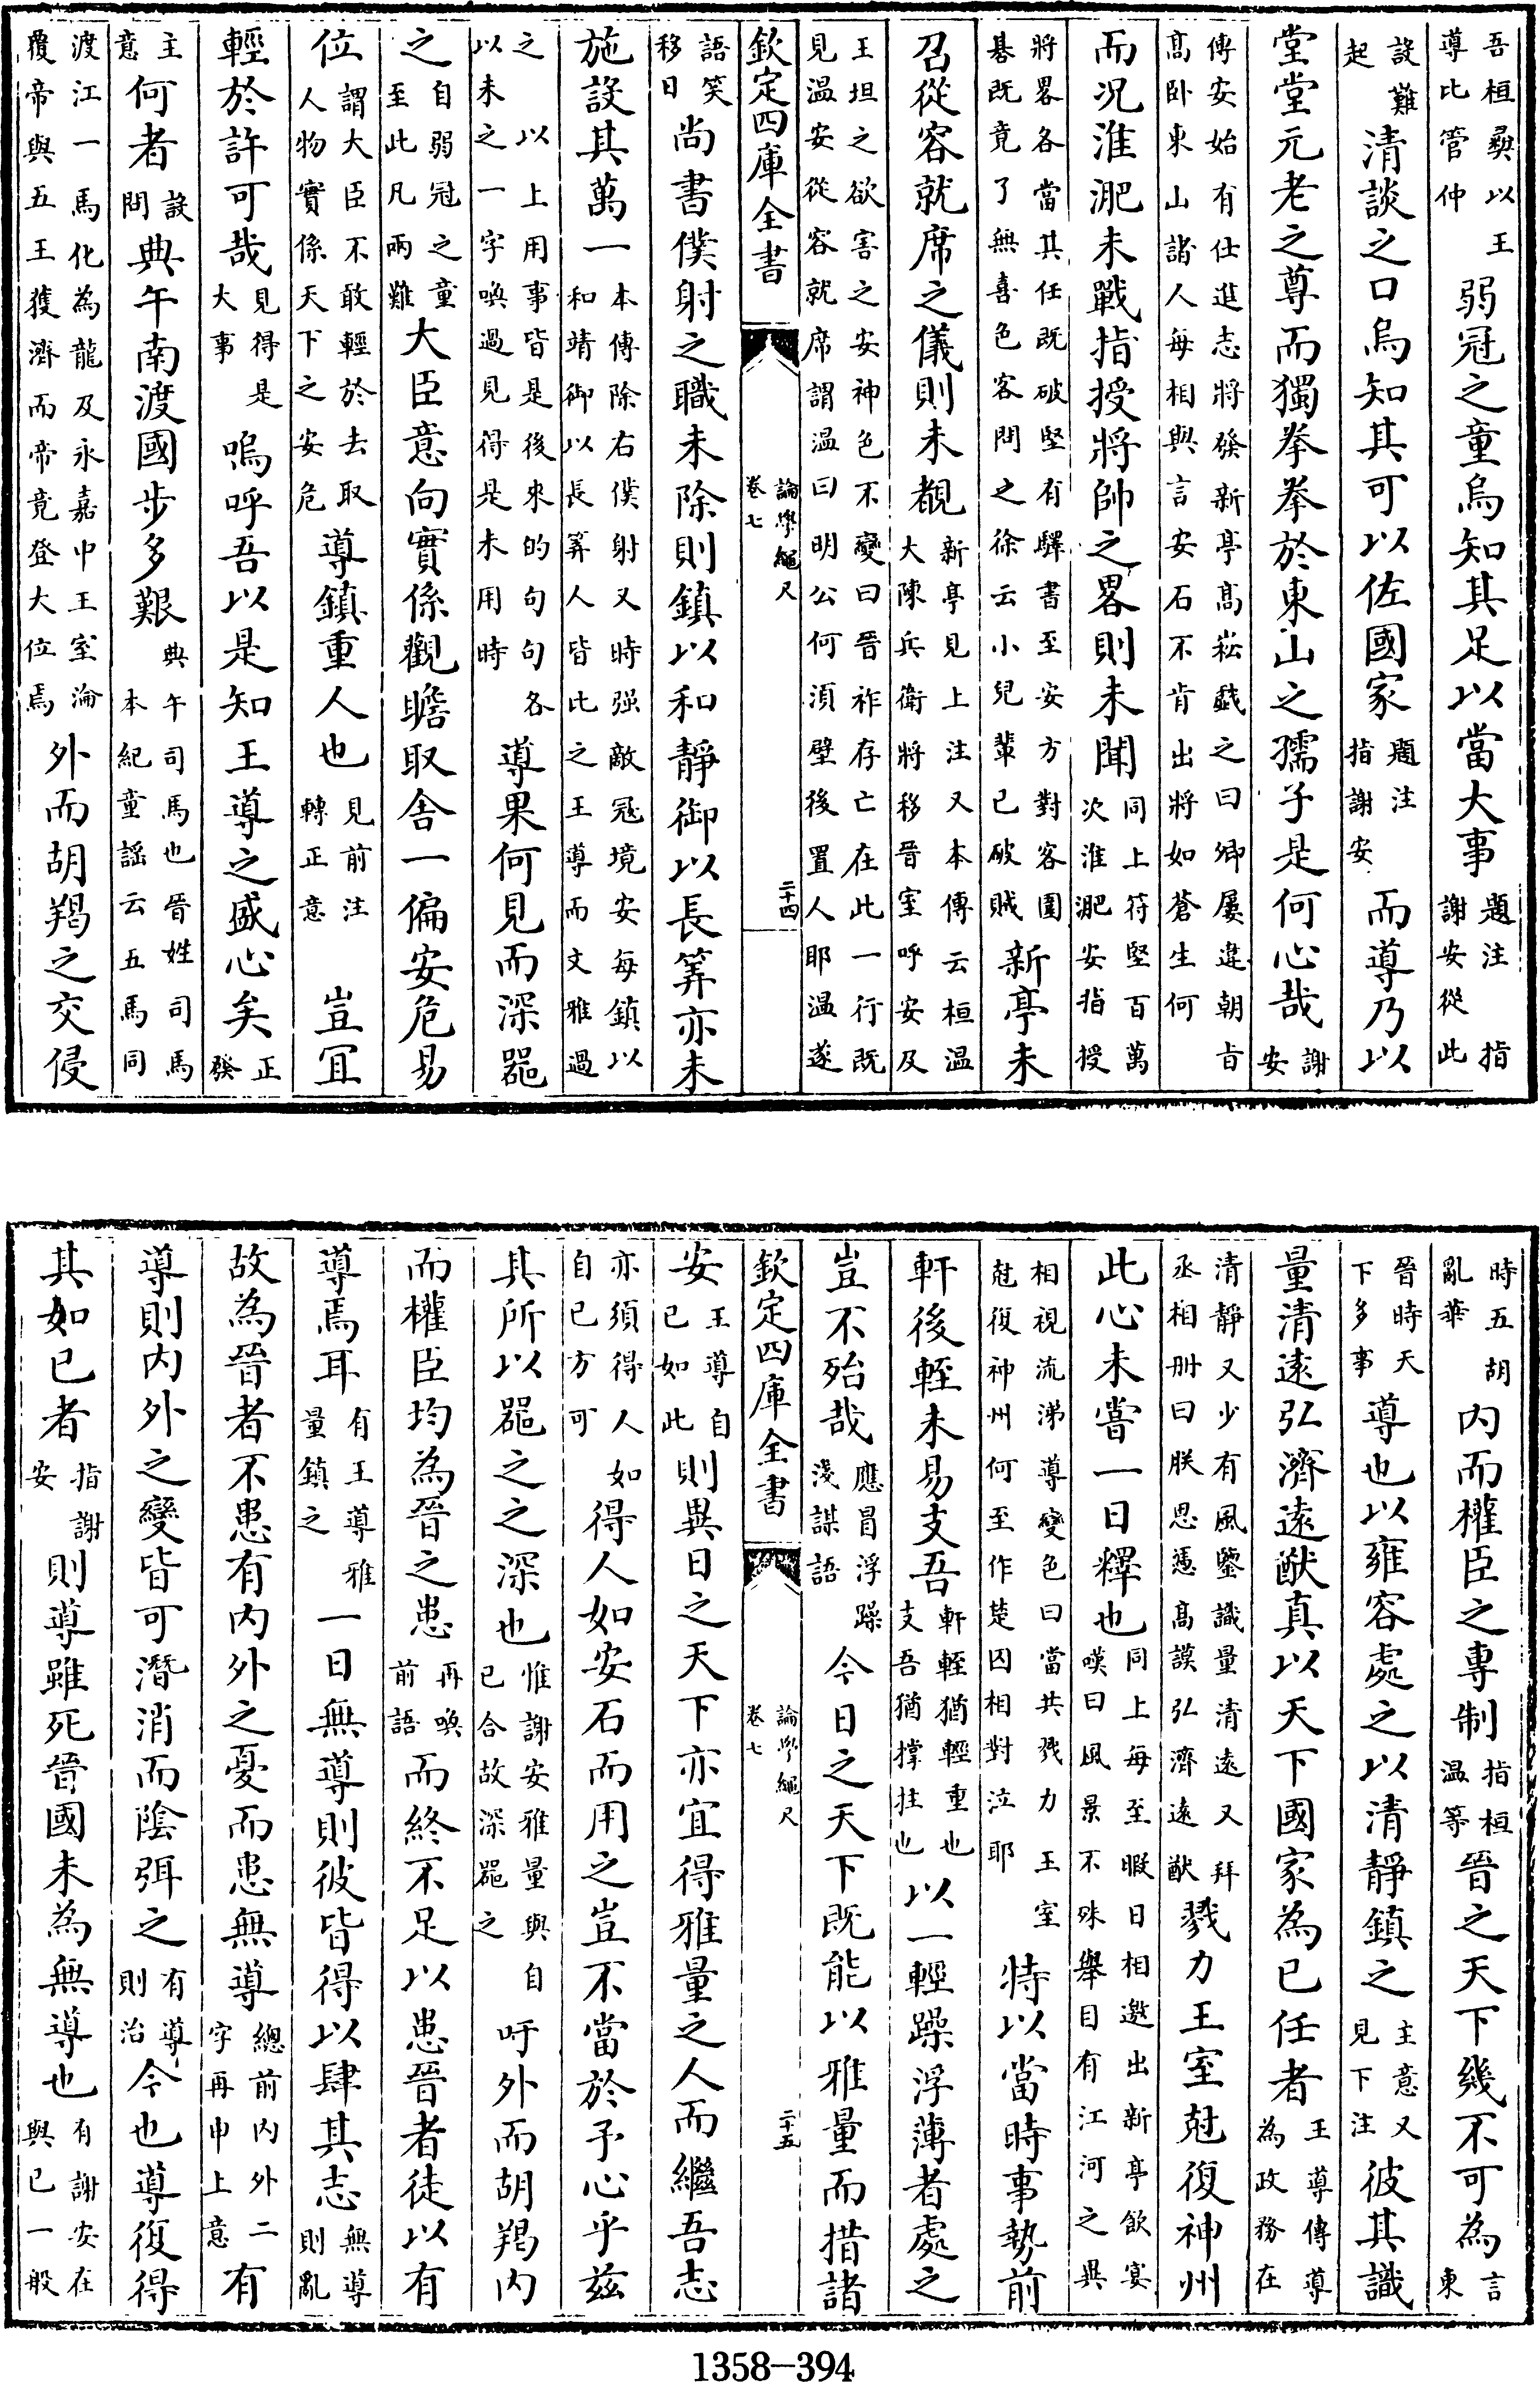 吾桓彛以王導比管仲弱冠之童烏知其足以當大事題注指謝安從此
設難起清談之口烏知其可以佐國家題注指謝安而導乃以
堂堂元老之尊而獨拳拳於東山之孺子是何心哉謝安
傳安始有仕進志將發新亭髙崧戯之曰卿屢違朝㫖髙卧東山諸人每相與言安石不肯出將如蒼生何
而况淮淝未戰指授將帥之畧則未聞同上符堅百萬次淮淝安指授
將畧各當其任既破堅有驛書至安方對客圍碁既竟了無喜色客問之徐云小兒輩已破賊新亭未
召從容就席之儀則未覩新亭見上注又本傳云桓温大陳兵衛將移晉室呼安及
王坦之欲害之安神色不變曰晉祚存亡在此一行既見温安從容就席謂温曰明公何須壁後置人耶温遂
欽定四庫全書
論學繩尺
卷七
二十四
語笑移日尚書僕射之職未除則鎮以和靜御以長筭亦未
施設其萬一本傳除右僕射又時强敵冦境安每鎮以和靖御以長筭人皆比之王導而文雅過
之以上用事皆是後來的句句各以未之一字喚過見得是未用時導果何見而深器
之自弱冠之童至此凡兩難大臣意向實係觀瞻取舍一偏安危易
位謂大臣不敢輕於去取人物實係天下之安危導鎮重人也見前注轉正意豈宜
輕於許可哉見得是大事嗚呼吾以是知王導之盛心矣正發
主意何者設問典午南渡國步多艱典午司馬也晉姓司馬本紀童謡云五馬同
渡江一馬化為龍及永嘉中王室淪覆帝與五王獲濟而帝竟登大位焉外而胡羯之交侵
時五胡亂華内而權臣之專制指桓温等晉之天下幾不可為言東
晉時天下多事導也以雍容處之以清靜鎮之主意又見下注彼其識
量清逺弘濟逺猷真以天下國家為已任者王導傳導為政務在
清靜又少有風鑒識量清逺又拜丞相册曰朕思慿髙謨弘濟逺猷戮力王室尅復神州
此心未甞一日釋也同上每至暇日相邀出新亭飲宴嘆曰風景不殊舉目有江河之異
相視流涕導變色曰當共戮力王室尅復神州何至作楚囚相對泣耶特以當時事勢前
軒後輊未易支吾軒輊猶輕重也支吾猶撑拄也以一輕躁浮薄者處之
豈不殆哉應冒浮躁淺謀語今日之天下既能以雅量而措諸
欽定四庫全書
論學繩尺
卷七
二十五
安王導自已如此則異日之天下亦宜得雅量之人而繼吾志
亦須得人如自已方可得人如安石而用之豈不當於予心乎兹
其所以器之之深也惟謝安雅量與自已合故深器之吁外而胡羯内
而權臣均為晉之患再喚前語而終不足以患晉者徒以有
導焉耳有王導雅量鎮之一日無導則彼皆得以肆其志無導則亂
故為晉者不患有内外之憂而患無導總前内外二字再申上意有
導則内外之變皆可潛消而陰弭之有導則治今也導復得
其如已者指謝安則導雖死晉國未為無導也有謝安在與已一般
1358-394